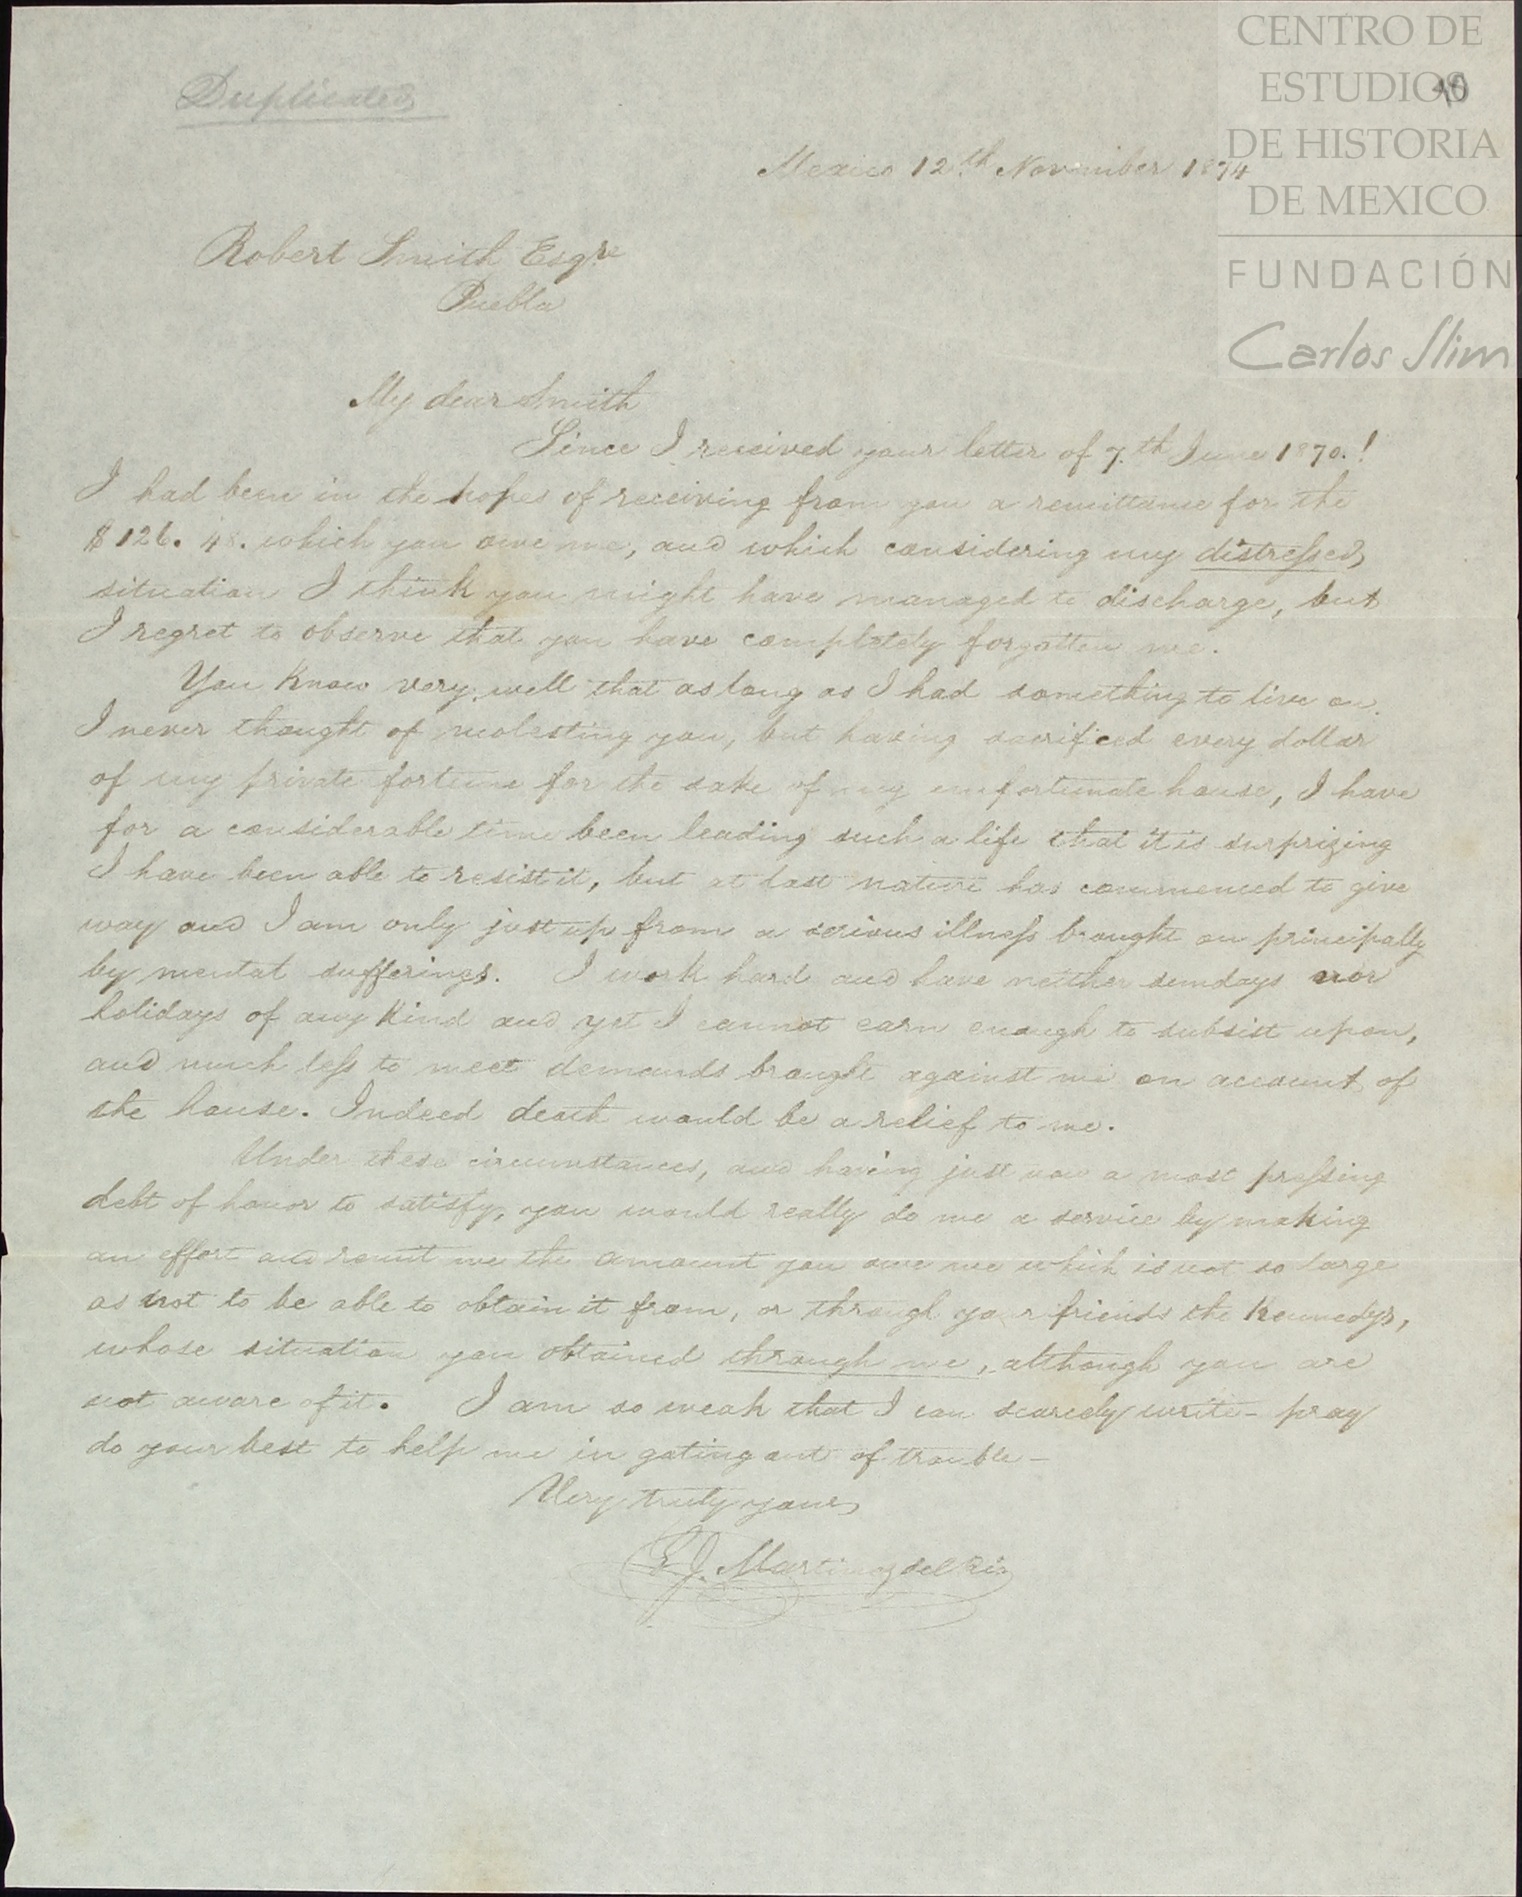 CENTRO DE
ESTUDIOS
DE HISTORIA
DE MEXICO
FUNDACIÓN
Carlos Slim
Duplicated
Mexico 12th November 1874
Robert Smith Esqre
Puebla
My dear Smith
Since I received your letter of 7.th June 1870.!
I had been in the hopes of receiving from you a remittance for the
$126.48. which you owe me, and which considering my distressed
situation I think you might have managed to discharge, but
I regret to observe that you have completely forgotten me.
You Know very well that as long as I had something to live on.
I never thought of molesting you, but having sacrificed every dollar
of my private fortune for the sake of my unfortunate house, I have
for a considerable time been leading such a life that it is surprizing
I have been able to resist it, but at last nature has commenced to give
way and I am only just up from a serious illness brought on principally
by mental sufferings. I work hard and have neither sundays nor
holidays of any Kind and yet I cannot earn enough to subsist upon,
and much less to meet demands brought against me on account of
the house. Indeed death would be a relief to me.
Under these circumstances, and having just now a most pressing
debt of honor to satisfy, you would really do me a service by making
an effort and remit me the amount you owe me which is not so large
as not to be able to obtain it from, or through your friends the Kennedys,
whose situation you obtained through me, although you are
not aware of it. I am so weak that I can scarcely write - pray
do your best to help me in gating out of trouble -
Very truly yours,
J. Martinez del Rio